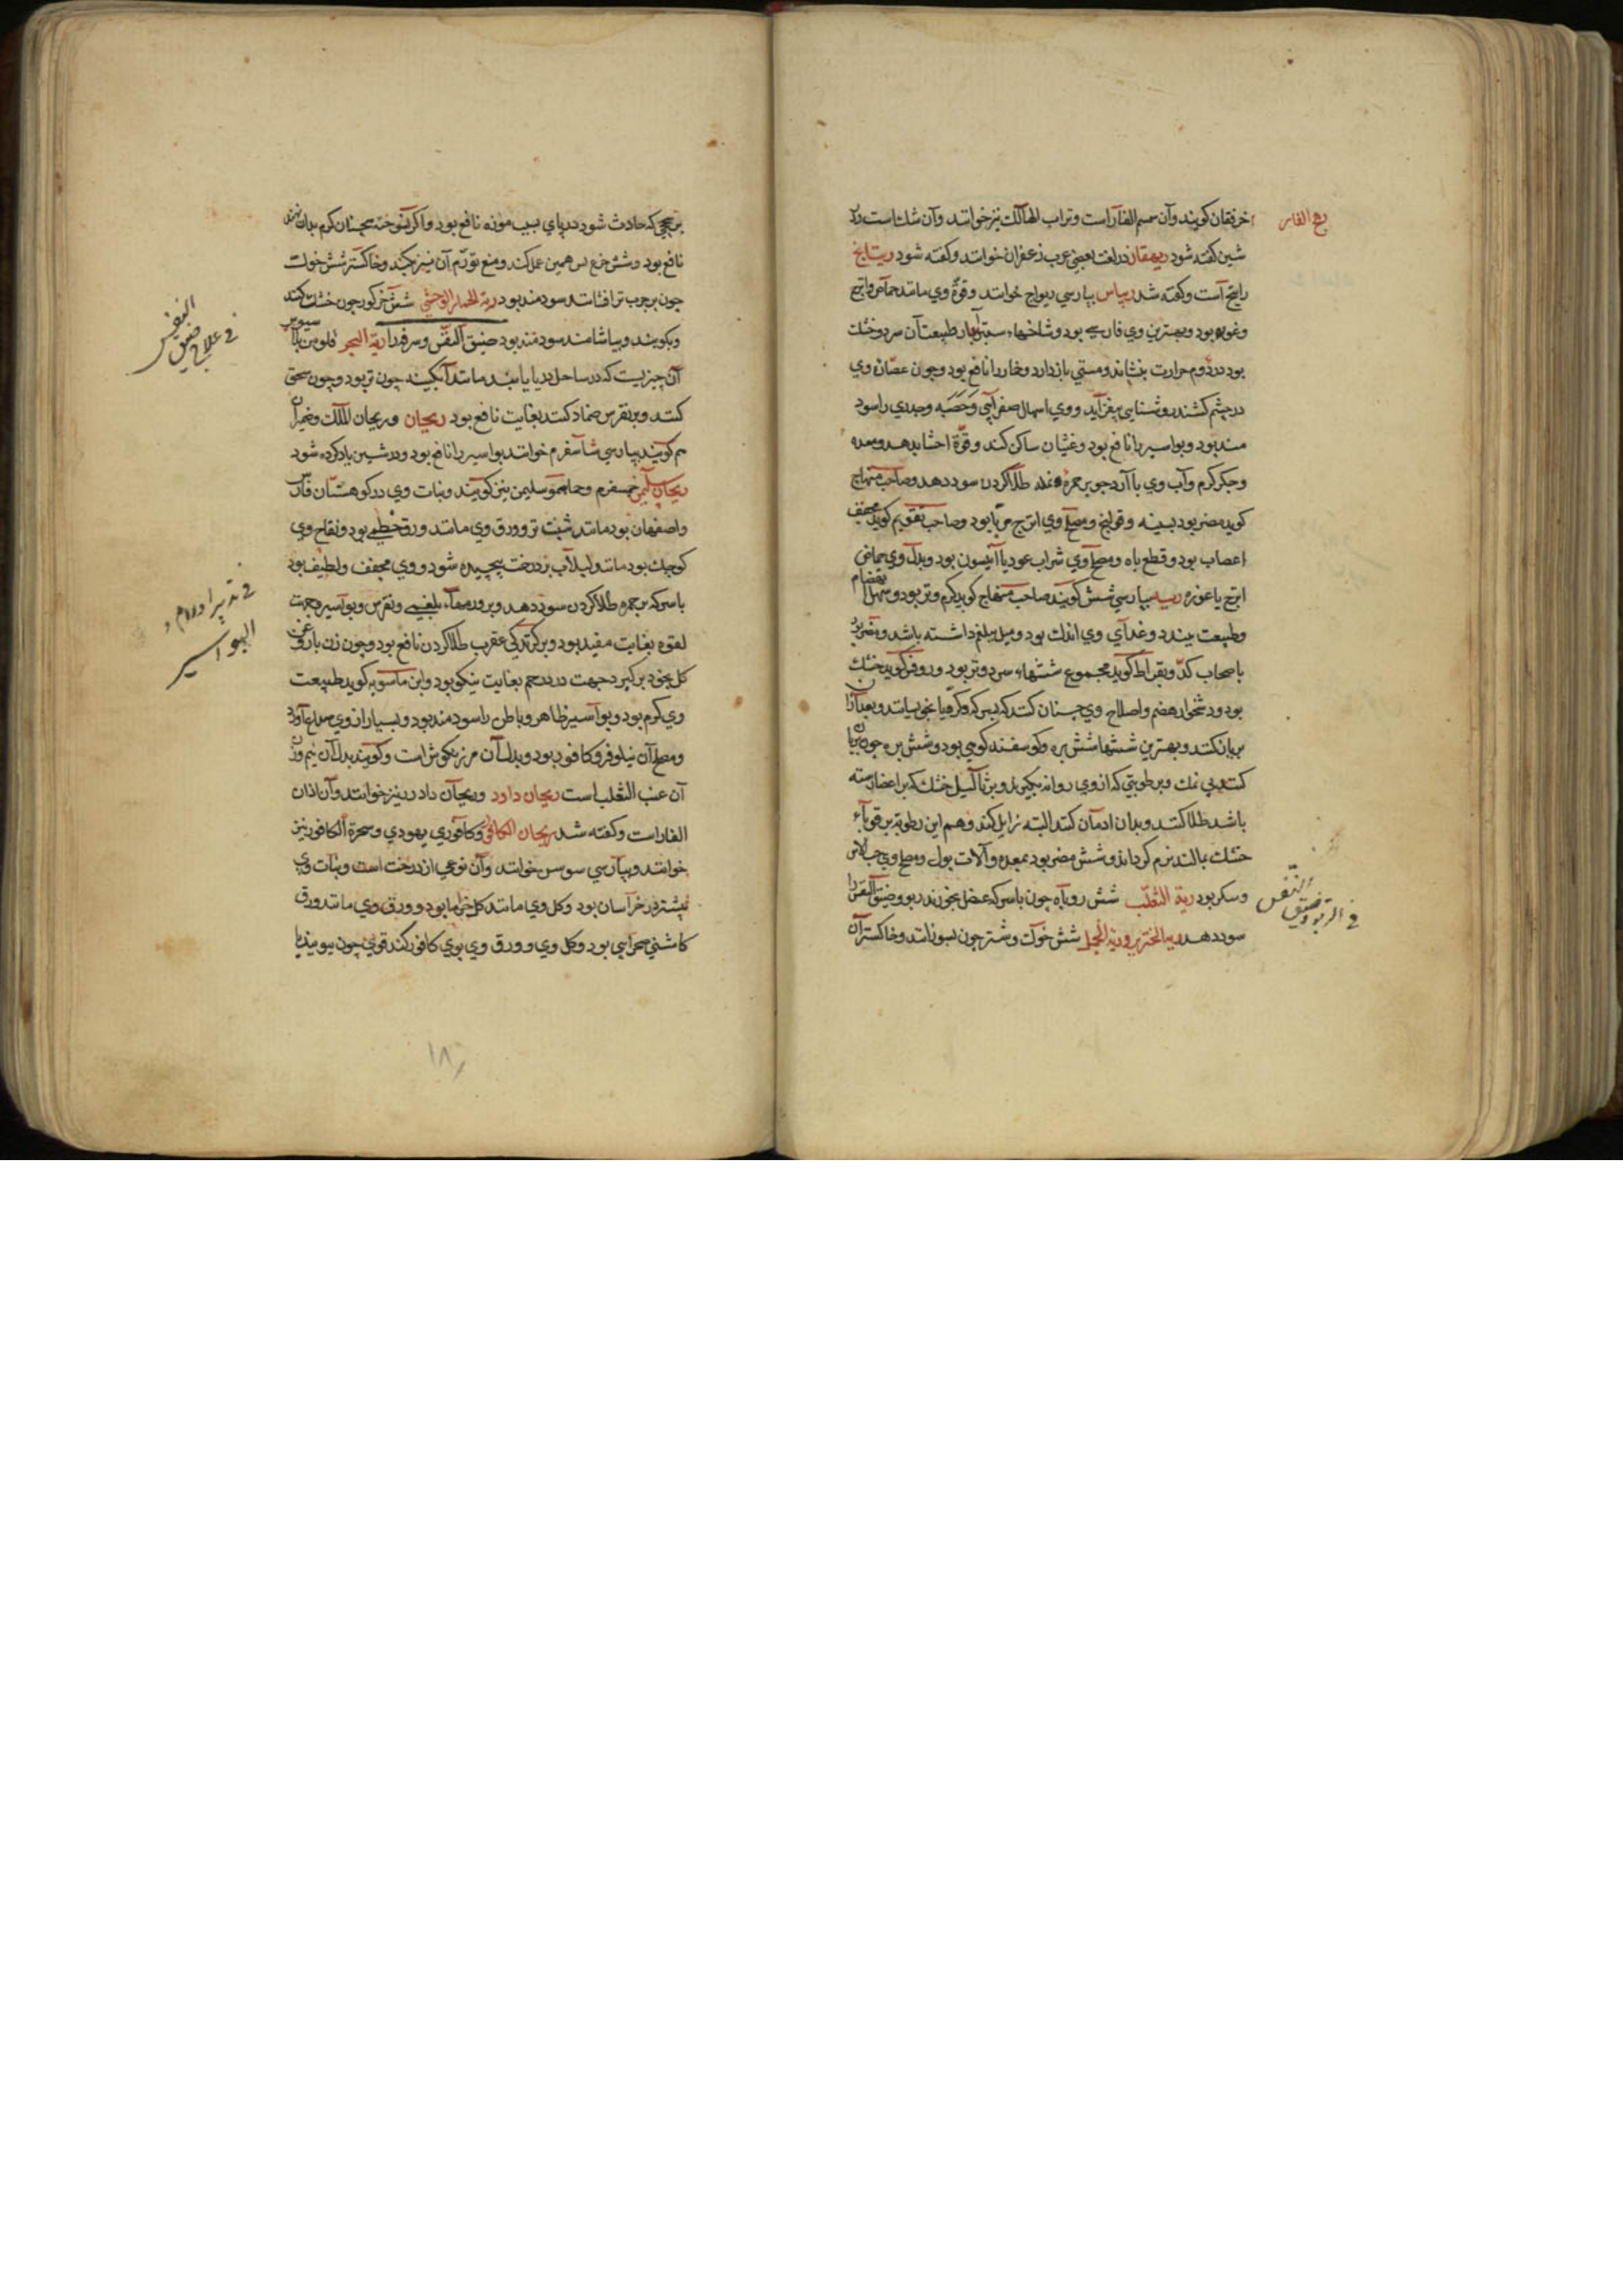 رهج الفار
خرفقان كويند وآن سم الفار است وتراب الهالك نيز خوانند وآن شك است در
شين كفته شود ريهقان در لغت بعضي عرب زعفران خوانند وكفته شود ريتايج
راتينج است وكفته شد ريباس بپارسي ريواج خوانند وقوة وي مانند حماض اترج
وغوره بود وبهترين وي فارسي بود وشاخهاء ستبر آبدار طبيعت آن سرد وخشك
بود در دوم حرارت بنشاند ومستي باز دارد وخمار را نافع بود وچون عصاره وي
در چشم كشند روشنايي بيفزايد ووي اسهال صفرايي وحصبه وجدري را سود
مند بود وبواسير را نافع بود وغثيان ساكن كند وقوة احشا بدهد ومعده
وجكر كرم وآب وي با آرد جو بر حمره ونمله طلا كردن سود دهد وصاحب منهاج
كويد مضر بود بسينه وقولنج ومصلح وي اترج مربا بود وصاحب تقويم كويد مجفف
اعصاب بود وقطع باه ومصلح وي شراب عود يا انيسون بود وبدل وي حماض
اترج يا غوره ريه بپارسي شش كويند صاحب منهاج كويد كرم وتر بود وسهل انهضام
وطبيعت ببندد وغداي وي اندك بود وميل ببلغم داشته باشد ومضر بود
باصحاب كد وبقراط كويد مجموع ششهاء سرد وتر بود وروفس كويد خشك
بود ودشخوار هضم واصلاح وي چنان كنند كه بسركه وكرويا بخوسانند وبعد از آن
بريان كنند وبهترين ششها شش بره وكوسفند كوهي بود وشش بره چون بريان
كنند بي نمك وبرطوبتي كه از وي روانه ميكيرد وبر ثاليل خشك كه بر اعضا رسته
باشد طلا كنند وبدان ادمان كنند البته زايل كند وهم اين رطوبة بر قوباء
خشك بمالند نرم كرداند وشش مضر بود بمعده وآلات بول ومصلح وي حب الاس
وسكر بود رية الثعلب شش روباه چون با سركه عنصل بخورند ربو وضيق النفس را
سود دهد رية الخنزير ورية الجمل شش خوك وشتر چون بسوزانند وخاكستر آن
في الربو وضيق النفس
بر سحجي كه حادث شود در پاي بسبب موزه نافع بود واكر نسوخته همچنان كرم بدان نهند
نافع بود وشش بز همين عمل كند ومنع تورم آن نيز بكند وخاكستر شش خوك
چون بر جرب تر افشانند سودمند بود رية الحمار الوحشي شش خر كور چون خشك كنند
وبكوبند وبياشامند سودمند بود ضيق النفس وسرفه را رية البحر
آن چيزيست كه در ساحل دريا يابند مانند آبكينه چون تر بود وچون سحق
كنند وبر نقرس ضماد كنند بغايت نافع بود ريحان وريحان الملك وضيمران
هم كويند بپارسي شاسفرم خوانند بواسير را نافع بود ودر شين ياد كرده شود
ريحان سليمن جمسفرم وحماحم سليمن نيز كويند ونبات وي در كوهستان فارس
واصفهان بود مانند شبت تر وورق وي مانند ورق خطمي بود وفقاح وي
كوچك بود مانند لبلاب بر درخت پيچيده شود ووي مجفف ولطيف بود
با سركه بر جمره طلا كردن سود دهد وبر ورمهاء بلغمي ونقرس وبواسير وجهت
لقوه بغايت مفيد بود وبر كزندكي عقرب طلا كردن نافع بود وچون زن با روغن
كل بخود بركيرد جهت درد رحم بغايت نيكو بود وابن ماسويه كويد طبيعت
وي كرم بود وبواسير ظاهر وباطن را سودمند بود وبسيار از وي صداع آورد
ومصلح آن نيلوفر وكافور بود وبدل آن مرزنكوش است وكويند بدل آن نيم وزن
آن عنب الثعلب است ريحان داود وريحان داد نيز خوانند وآن اذان
الفار است وكفته شد ريحان الكافور وكافوري يهودي وشجرة الكافور نيز
خوانند وبپارسي سوسن خوانند وآن نوعي از درخت است ونبات وي
بيشتر در خراسان بود وكل وي مانند كل خرما بود وورق وي مانند ورق
كاسني صحرايي بود وكل وي وورق وي بوي كافور كند قوي چون ببويند يا
في علاج ضيق النفس
في تدبير اورام و
البواسير